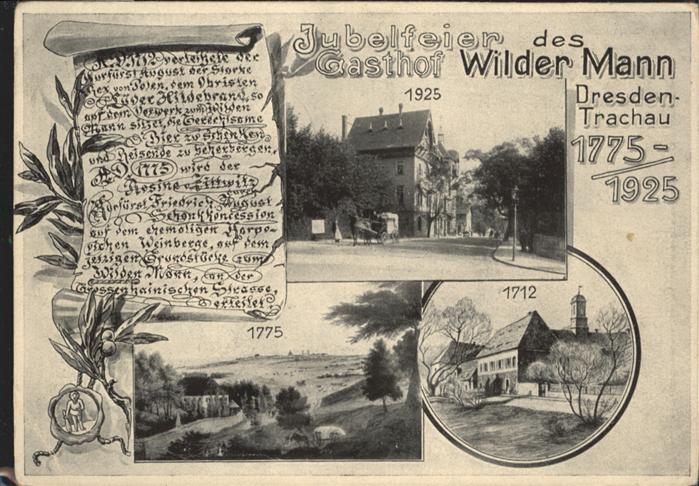 A. D. 1712 verleihete der
Kurfürst August der Starke
Rex von Polen, dem Obristen
Luder Hildebrand, so
auf dem Vorwerk zum Wilden
Mann sitzet, die Gerechtsame
Bier zu schenken
und Reisende zu beherbergen.
A. D. 1775 wird der
Rosine Zittwitz
durch
Kurfürst Friedrich August
Schankkoncession
auf dem ehemaligen Harpo-
richen Weinberge, auf dem
jetzigen Grundstücke zum
Wilden Mann, an der
Grossenhainischen Strasse,
erteilet.
Jubelfeier des
Gasthof Wilder Mann
Dresden-
Trachau
1775-
1925
1925
1775
1712